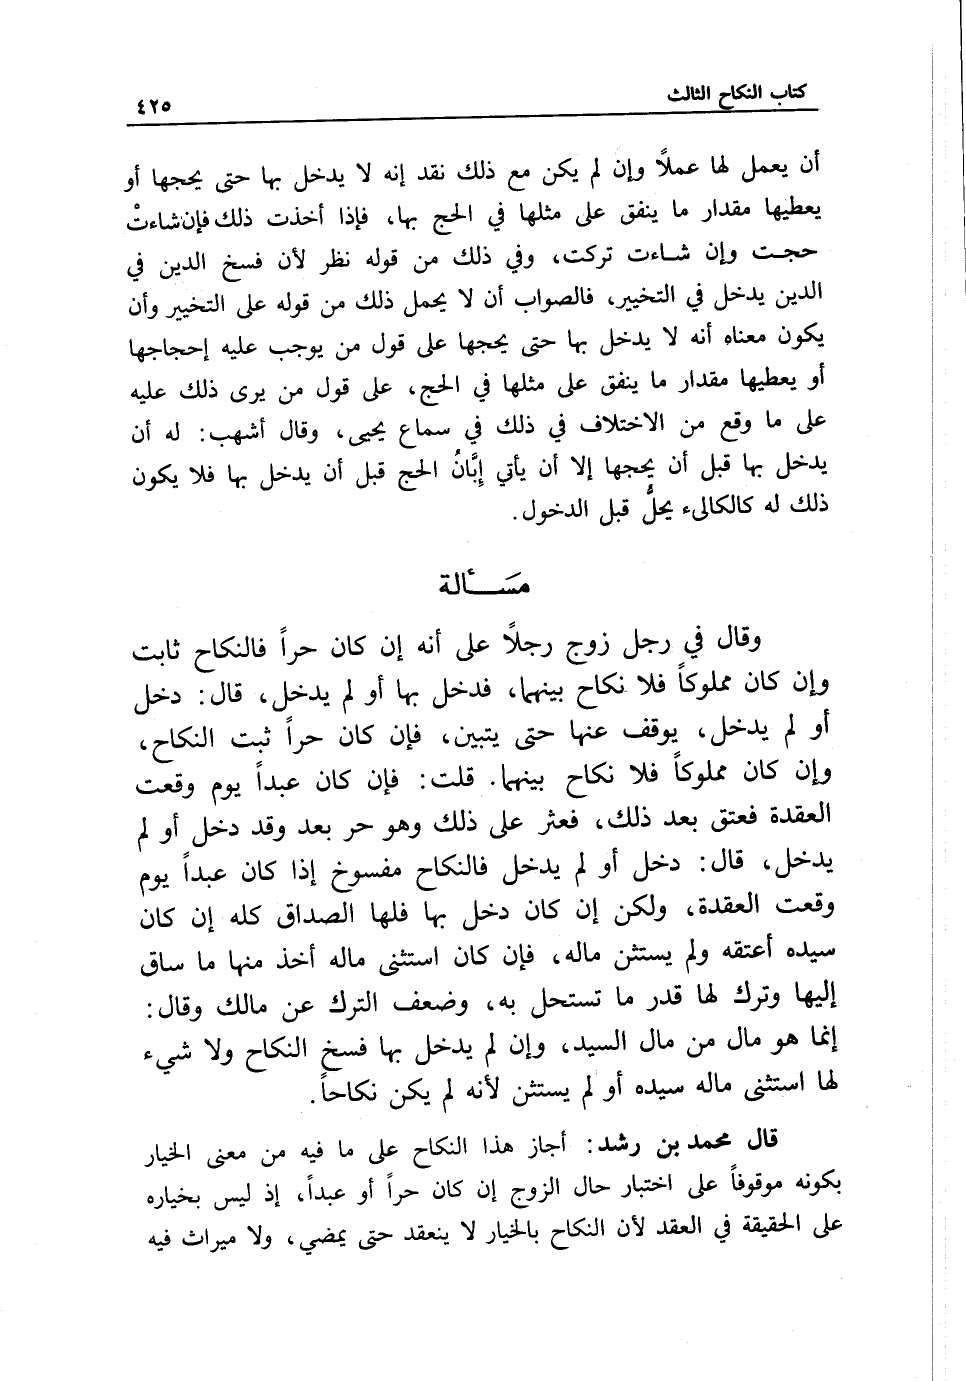 كتاب النكاح الثالث
٤٢٥
أن يعمل لها عملاً وإن لم يكن مع ذلك نقد إنه لا يدخل بها حتى يحجها أو
يعطيها مقدار ما ينفق على مثلها في الحج بها، فإذا أخذت ذلك فإن شاءتْ
حجت وإن شاءت تركت، وفي ذلك من قوله نظر لأن فسخ الدين في
الدين يدخل في التخيير، فالصواب أن لا يحمل ذلك من قوله على التخيير وأن
يكون معناه أنه لا يدخل بها حتى يحجها على قول من يوجب عليه إحجاجها
أو يعطيها مقدار ما ينفق على مثلها في الحج، على قول من يرى ذلك عليه
على ما وقع من الاختلاف في ذلك في سماع يحيى، وقال أشهب: له أن
يدخل بها قبل أن يحجها إلا أن يأتي إبَّانُ الحج قبل أن يدخل بها فلا يكون
ذلك له كالكالىء يحلُّ قبل الدخول.
مَســألة
وقال في رجل زوج رجلاً على أنه إن كان حراً فالنكاح ثابت
وإن كان مملوكاً فلا نكاح بينهما، فدخل بها أو لم يدخل، قال: دخل
أو لم يدخل، يوقف عنها حتى يتبين، فإن كان حراً ثبت النكاح،
وإن كان مملوكاً فلا نكاح بينهما. قلت: فإن كان عبداً يوم وقعت
العقدة فعتق بعد ذلك، فعثر على ذلك وهو حر بعد وقد دخل أو لم
يدخل، قال: دخل أو لم يدخل فالنكاح مفسوخ إذا كان عبداً يوم
وقعت العقدة، ولكن إن كان دخل بها فلها الصداق كله إن كان
سيده أعتقه ولم يستثن ماله، فإن كان استثنى ماله أخذ منها ما ساق
إليها وترك لها قدر ما تستحل به، وضعف الترك عن مالك وقال:
إنما هو مال من مال السيد، وإن لم يدخل بها فسخ النكاح ولا شيء
لها استثنى ماله سيده أو لم يستثن لأنه لم يكن نكاحاً.
قال محمد بن رشد: أجاز هذا النكاح على ما فيه من معنى الخيار
بكونه موقوفاً على اختبار حال الزوج إن كان حراً أو عبداً، إذ ليس بخياره
على الحقيقة في العقد لأن النكاح بالخيار لا ينعقد حتى يمضي، ولا ميراث فيه